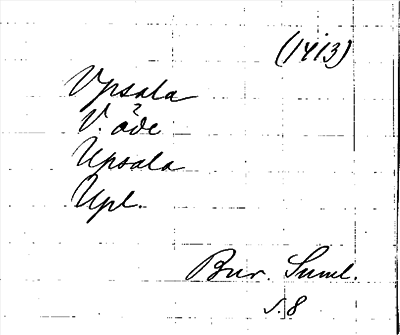 (1413)
Vpsala
V. åde
Upsala
Upl.
Bur. Suml.
s. 8